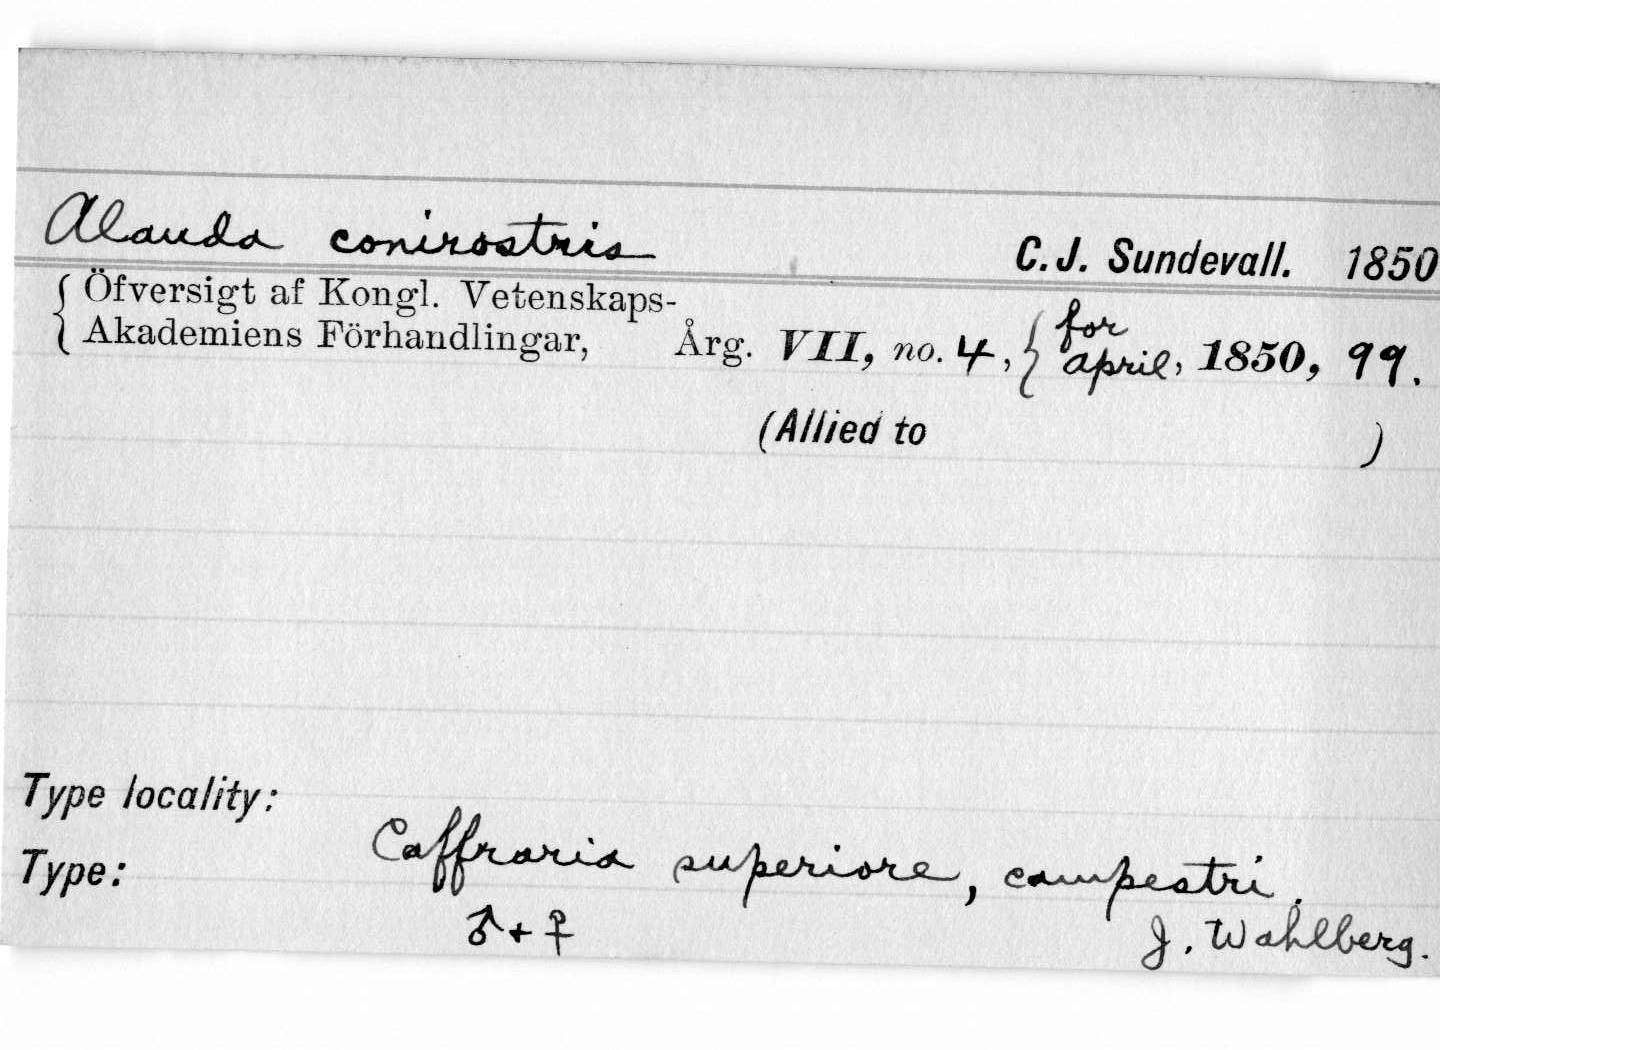 Alauda conirostris C. J. Sundevall. 1850
{ Öfversigt af Kongl. Vetenskaps-
Akademiens Förhandlingar, Årg. VII, no. 4, { for april, 1850, 99.
(Allied to )
Type locality:
Caffraria superiore, campestri.
Type:
♂ + ♀ J. Wahlberg.